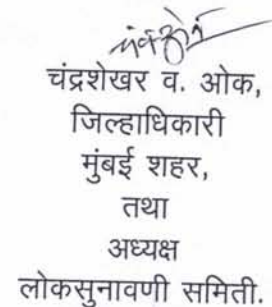 चंद्रशेखर व. ओक,
जिल्हाधिकारी
मुंबई शहर,
तथा
अध्यक्ष
लोकसुनावणी समिती.